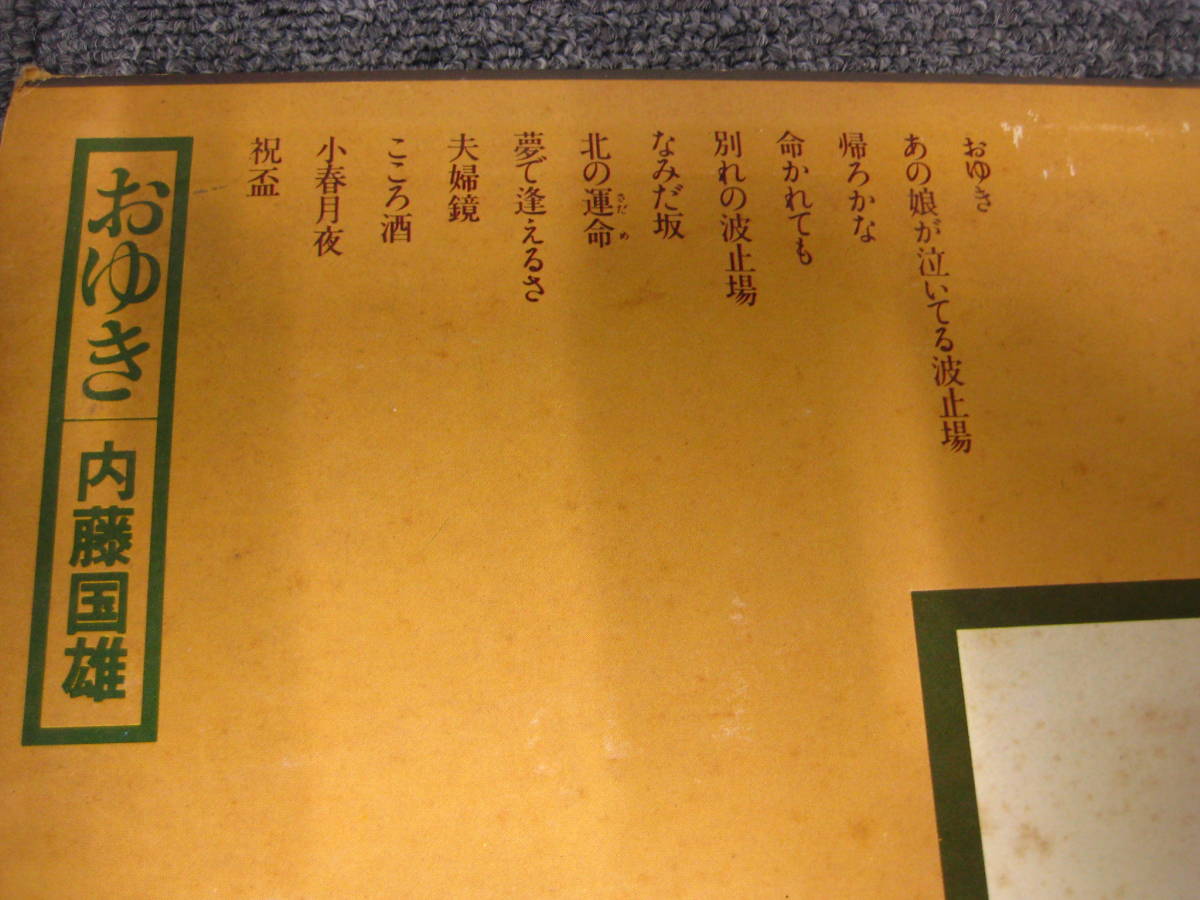 おゆき
あの娘が泣いてる波止場
帰ろかな
命かれても
別れの波止場
なみだ坂
北の運命
さだめ
夢で逢えるさ
夫婦鏡
こころ酒
小春月夜
祝盃
おゆき
内藤国雄